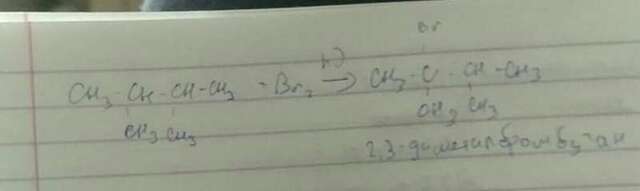 Br
CH₃-CH-CH-CH₃ + Br₂ → CH₃-C-CH-CH₃
CH₃ CH₃ CH₃ CH₃
2,3-диметилбромбутан